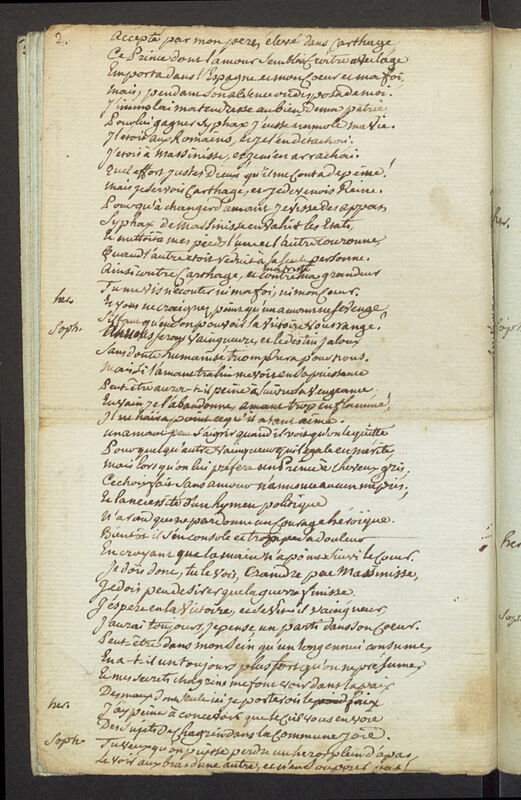 2.
Accepté par mon pere, elevé dans Carthage
Ce Prince dont l'amour sembloit croitre avec l'age
Emporta dans l'Espagne et mon Coeur et ma foi,
Mais, pendant son absence on disposa de moi.
J'immolai ma tendresse au bien de ma patrie
Pour lui gagner Syphax j'eusse immolé ma vie.
Il etoit aux Romains, et je l'en detachai.
J'etois à Massinisse, et je m'en arrachai
Quel effort justes Dieux! qu'il me couta de peine!
Mais je servois Carthage, et je devenois Reine.
Pourquoi à changer d'amant je visse des appas
Syphax de Massinisse envahit les Etats,
Et mettoit à mes pieds l'une et l'autre couronne,
Quand l'autre etoit reduit à sa seule personne.
Ainsi contre Carthage, et contre ma grandeur
Tu me vis n'ecouter ni ma foi, ni mon Coeur.
her. Et vous ne craignez point qu'un amant ne se venge
S'il faut qu'en son pouvoir la Victoire vous range?
Soph. Nous vaincrons, et le destin jaloux
Sans doute triomphera pour nous.
Mais si l'amant trahi me voit en sa puissance
Peut-être aura-t-il peine à suivre sa Vengeance.
En vain je l'abandonne, amant trop enflammé,
Il ne haïra point ce qu'il a tant aimé.
Un amant peut s'aigrir quand il voit qu'on le quitte
Pour quelqu'autre vainqueur qui l'egale en merite,
Mais lors qu'on lui prefere un Prince à cheveux gris,
Ce choix fait sans amour n'a mené aucun mépris,
Et la necessité d'un hymen politique
N'a rien que ne pardonne un Courage heroïque.
Bientôt il s'en console et trompe sa douleur
En croyant que la main n'a point suivi le Coeur.
Je dois donc, tu le vois, Craindre peu Massinisse,
Je dois peu desirer que la guerre finisse.
J'espere en la Victoire, et le sera-t-il vainqueur
J'aurai toujours, je pense, un parti dans son Coeur.
Peut-être dans mon Sein qu'un long ennui consume,
En a-t-il un toujours plus fort qu'on ne présume,
Et mes secrets chagrins me font voir dans la paix
Des maux dont seule ici je porterois le faix
her. J'ay peine à concevoir que le Ciel vous envoie
Des sujets de Chagrin dans la Commune joie.
Soph. Tu veux qu'on puisse perdre un heros plein d'apas
Le voir aux bras d'une autre, et n'en soupirer pas!